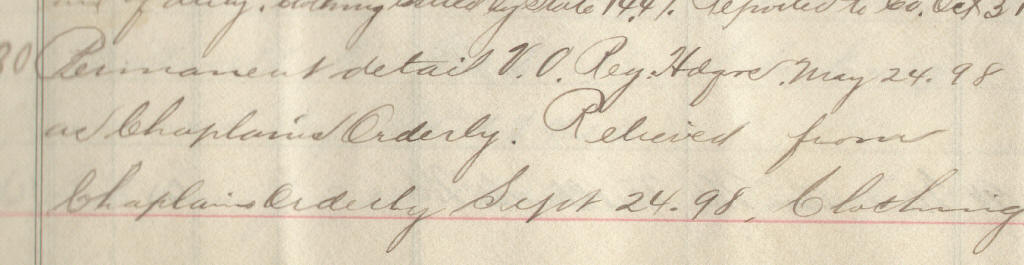 of duty. Clothing issued by State 14.41. Reported to Co. Oct 31
30 Permanent detail V. O. Reg. Hdqrs. May 24. 98
as Chaplains Orderly. Relieved from
Chaplains Orderly Sept 24. 98, Clothing